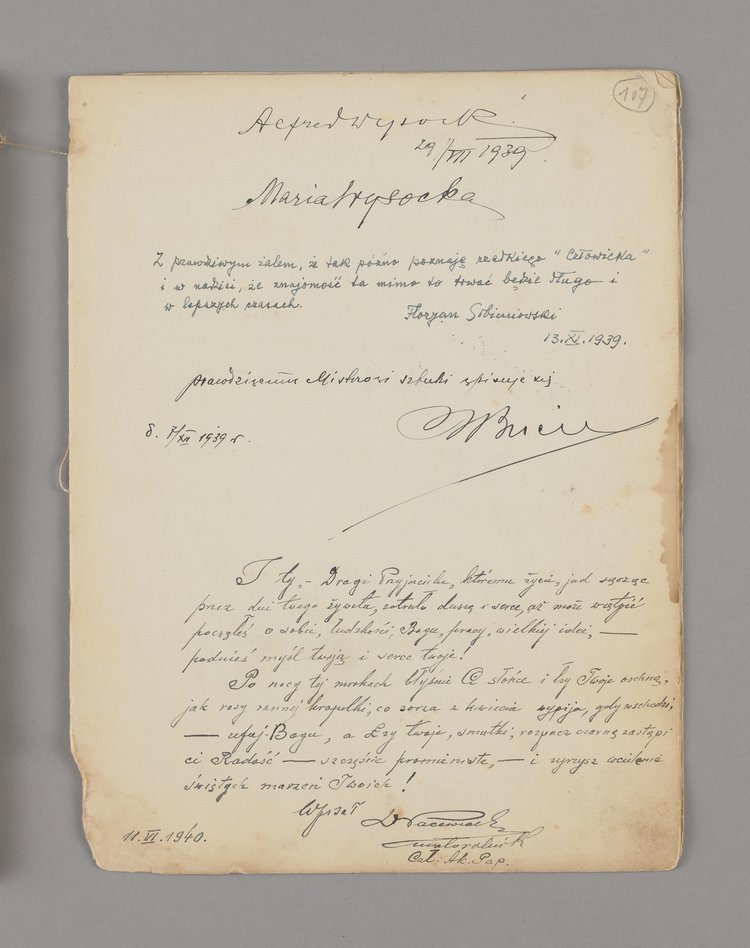 107
Alfred Wysocki
29/VII 1939
Maria Wysocka
Z prawdziwym żalem, że tak późno poznaję rzadkiego "Człowieka"
i w nadziei, że znajomość ta mimo to trwać będzie długo i
w lepszych czasach.
Floryan Sobieniowski
13.XI.1939.
prawdziwemu Mistrzowi sztuki wpisuje się
d. 7/XII 1939 r.
I ty, - Drogi Przyjacielu, któremu życie, jad sącząc
przez dni twego żywota, zatruło duszę i serce, aż może wątpić
począłeś o sobie, ludzkości, Bogu, pracy, wielkiej idei, —
podnieś myśl twoją i serce twoje!
Po nocy tej mrokach błyśnie Ci słońce i łzy Twoje oschną,
jak rosy rannej kropelki, co zorza z kwiecia wypija, gdy wschodzi,
— ufaj Bogu, a Łzy twoje, smutki, rozpacz czarną zastąpi
ci Radość — szczęście promieniste, — i ujrzysz wcielenie
świętych marzeń Twoich!
Wpisał
11.VI.1940.
Czł. Ak. Pap.